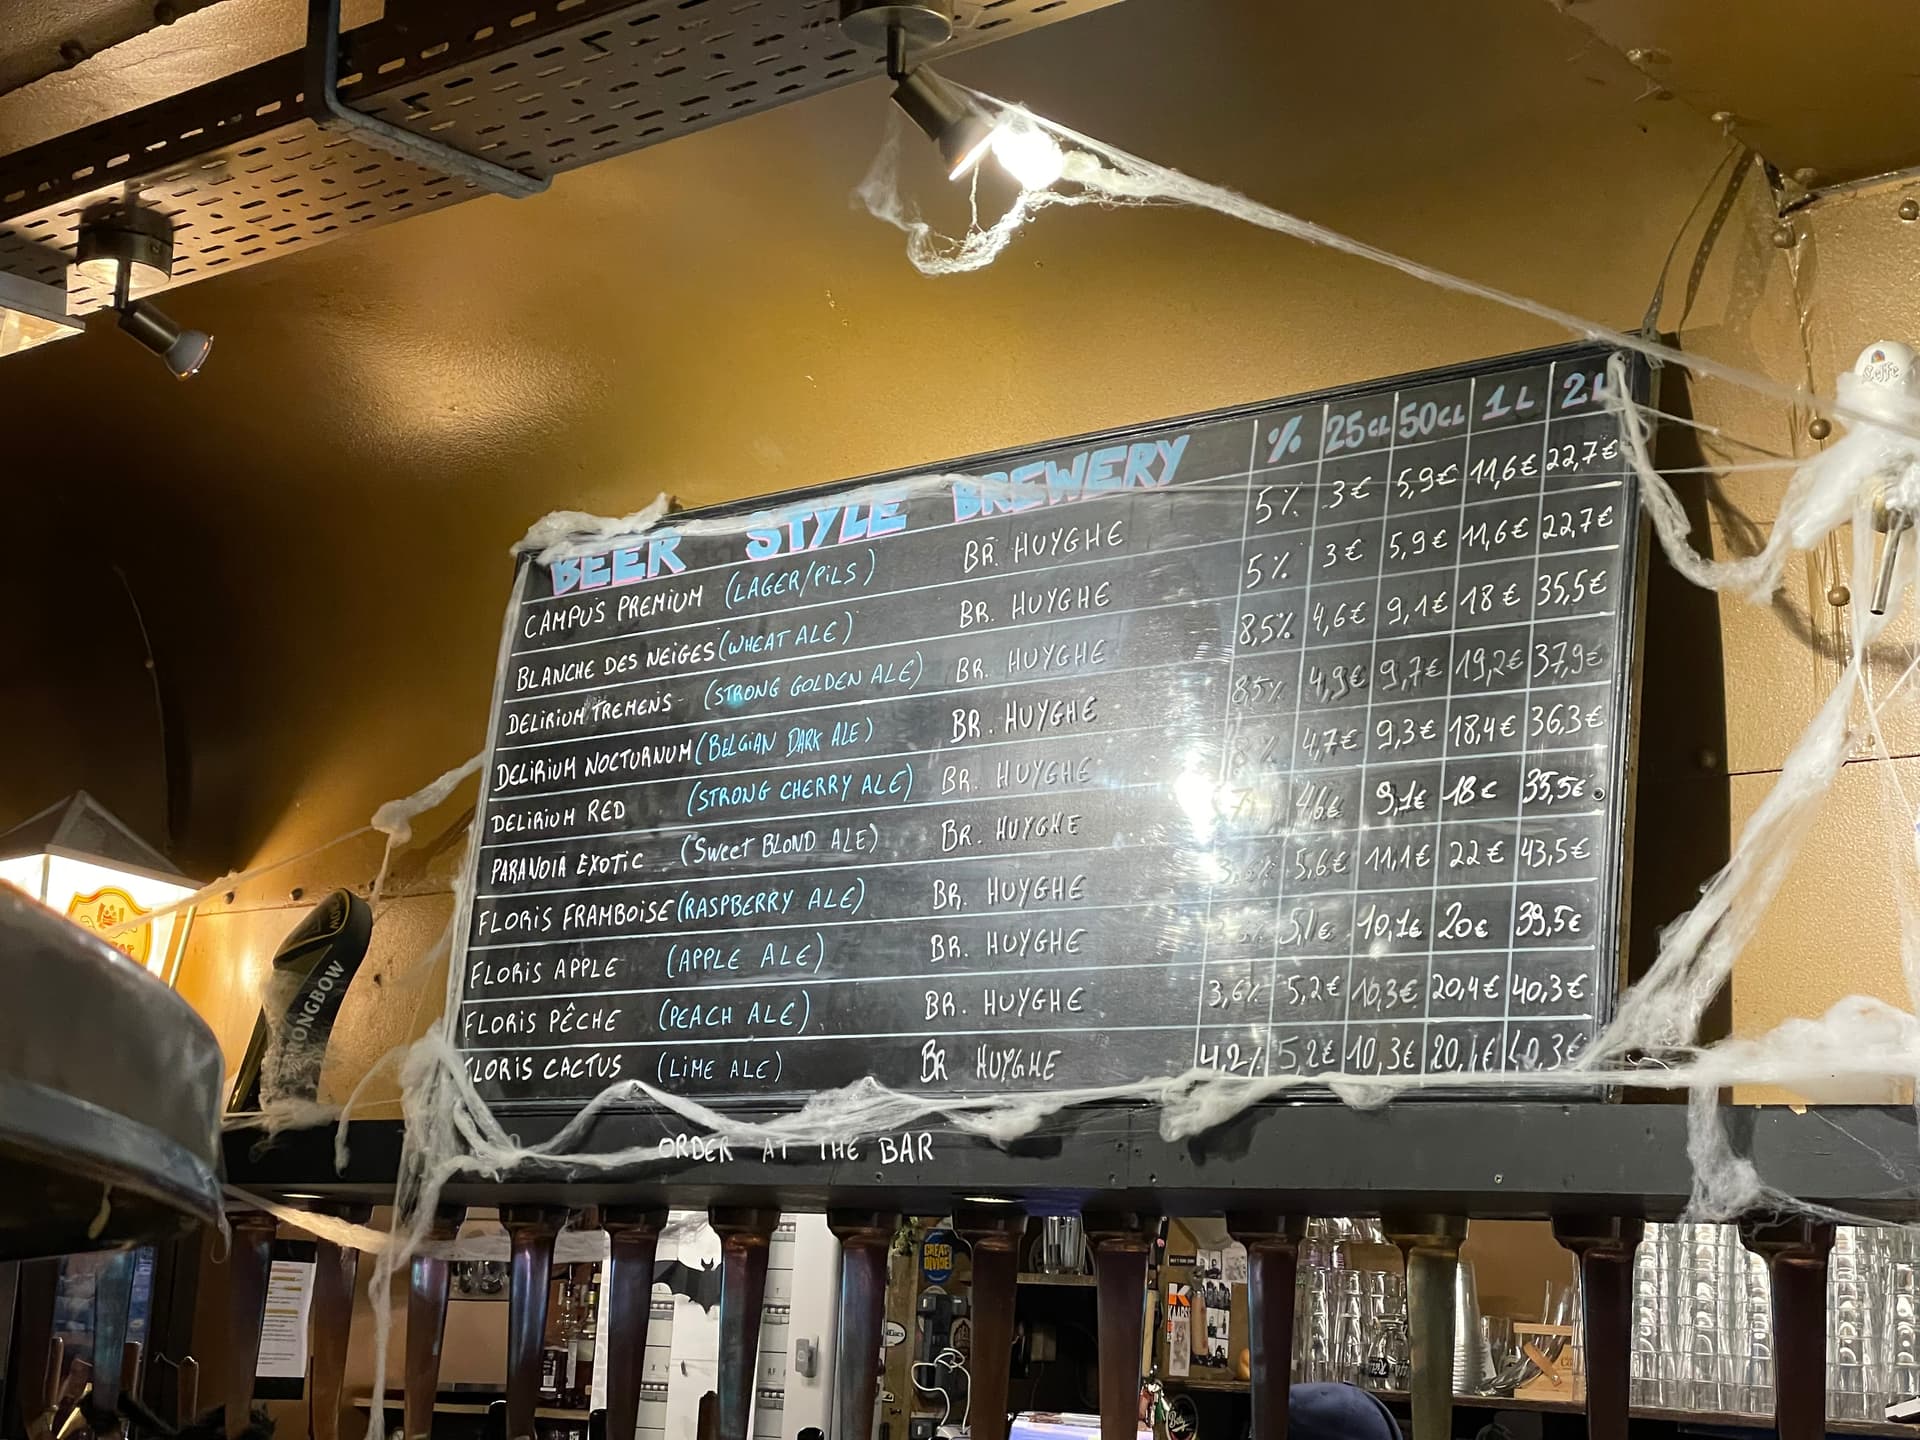 BEER STYLE BREWERY % 25CL 50CL 1L 2L
CAMPUS PREMIUM (LAGER/PILS) BR. HUYGHE 5% 3€ 5,9€ 11,6€ 22,7€
BLANCHE DES NEIGES (WHEAT ALE) BR. HUYGHE 5% 3€ 5,9€ 11,6€ 22,7€
DELIRIUM TREMENS (STRONG GOLDEN ALE) BR. HUYGHE 8,5% 4,6€ 9,1€ 18€ 35,5€
DELIRIUM NOCTURNUM (BELGIAN DARK ALE) BR. HUYGHE 8,5% 4,9€ 9,7€ 19,2€ 37,9€
DELIRIUM RED (STRONG CHERRY ALE) BR. HUYGHE 8% 4,7€ 9,3€ 18,4€ 36,3€
PARANOIA EXOTIC (Sweet BLOND ALE) BR. HUYGHE 4,6€ 9,1€ 18€ 35,5€
FLORIS FRAMBOISE (RASPBERRY ALE) BR. HUYGHE 5,6€ 11,1€ 22€ 43,5€
FLORIS APPLE (APPLE ALE) BR. HUYGHE 5,1€ 10,1€ 20€ 39,5€
FLORIS PÊCHE (PEACH ALE) BR. HUYGHE 3,6% 5,2€ 10,3€ 20,4€ 40,3€
FLORIS CACTUS (LIME ALE) BR HUYGHE 4,2% 5,2€ 10,3€
ORDER AT THE BAR
Leffe
STRONGBOW
GREAT DIVIDE